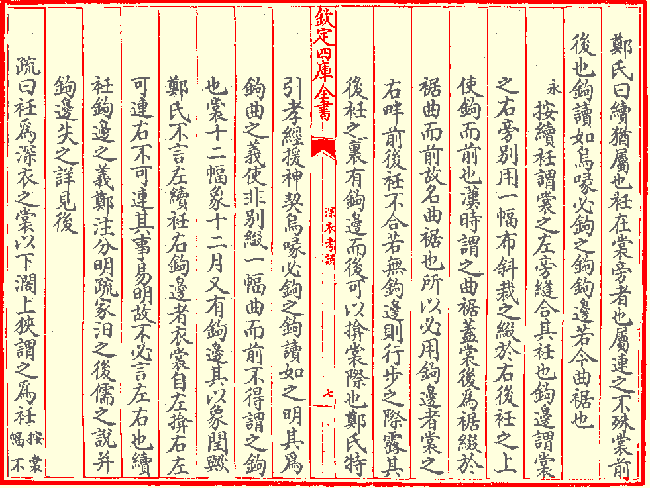 鄭氏曰續猶屬也衽在裳旁者也屬連之不殊裳前
後也鉤讀如鳥喙必鉤之鉤鉤邊若今曲裾也
永按續衽謂裳之左旁縫合其衽也鉤邊謂裳
之右旁別用一幅布斜裁之綴於右後衽之上
使鉤而前也漢時謂之曲裾蓋裳後為裾綴於
裾曲而前故名曲裾也所以必用鉤邊者裳之
右畔前後衽不合若無鉤邊則行步之際露其
後衽之裏有鉤邊而後可以揜裳際也鄭氏特
欽定四庫全書
深衣考誤
七
引孝經援神契鳥喙必鉤之鉤讀如之明其為
鉤曲之義使非別綴一幅曲而前不得謂之鉤
也裳十二幅象十二月又有鉤邊其以象閏歟
鄭氏不言左續衽右鉤邊者衣裳自左揜右左
可連右不可連其事易明故不必言左右也續
衽鉤邊之義鄭注分明疏家汩之後儒之說并
鉤邊失之詳見後
疏曰衽為深衣之裳以下濶上狹謂之為衽按裳
幅不